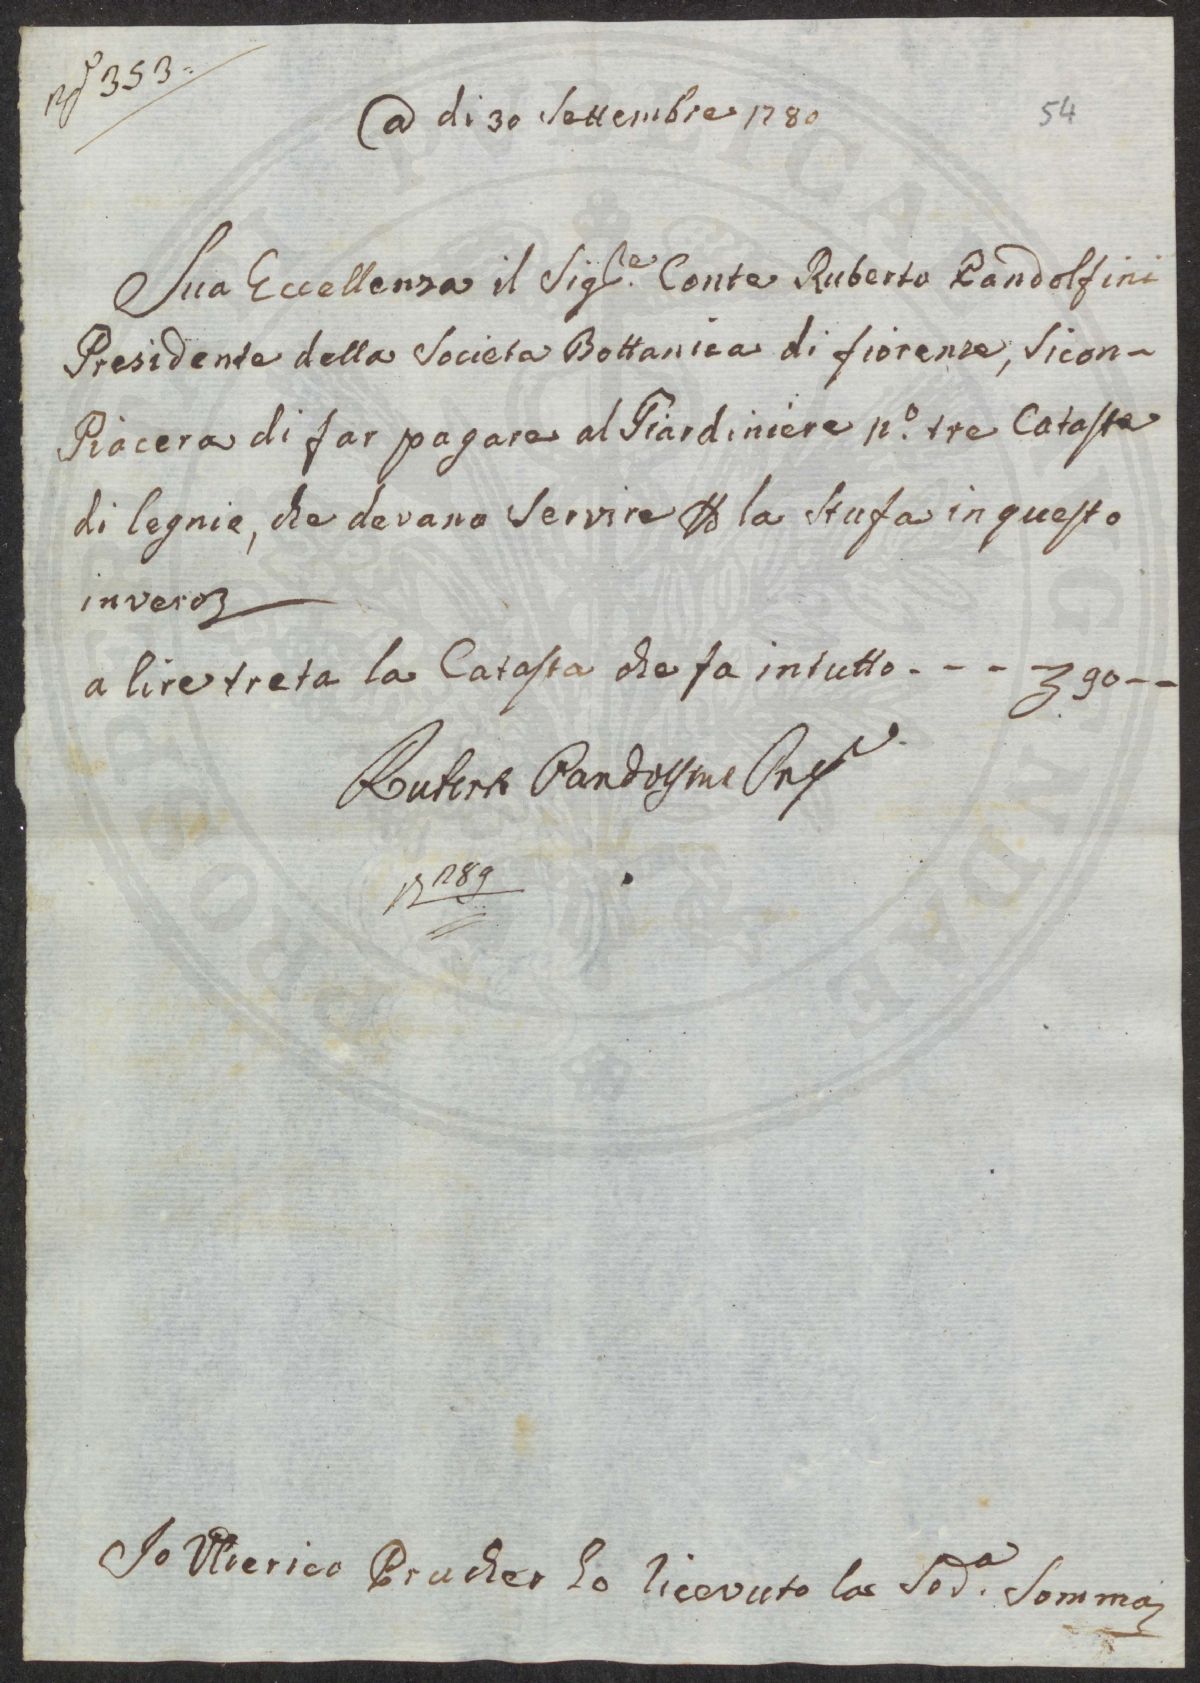 N.o 353.
54
A di 30 Settembre 1780
Sua Eccellenza il Sig.re Conte Ruberto Pandolfini
Presidente della Societa Bottanica di fiorenze, Sicon-
Piacera di far pagare al Giardiniere n.o tre Catasta
di legnie, che devano Servire per la Stufa in questo
invero
a lire treta la Catasta che fa in tutto - - - - 90 - -
Ruberto Pandolfini Pres.
289
Io Ulderico Prucher ho licevuto la Sod.a Somma